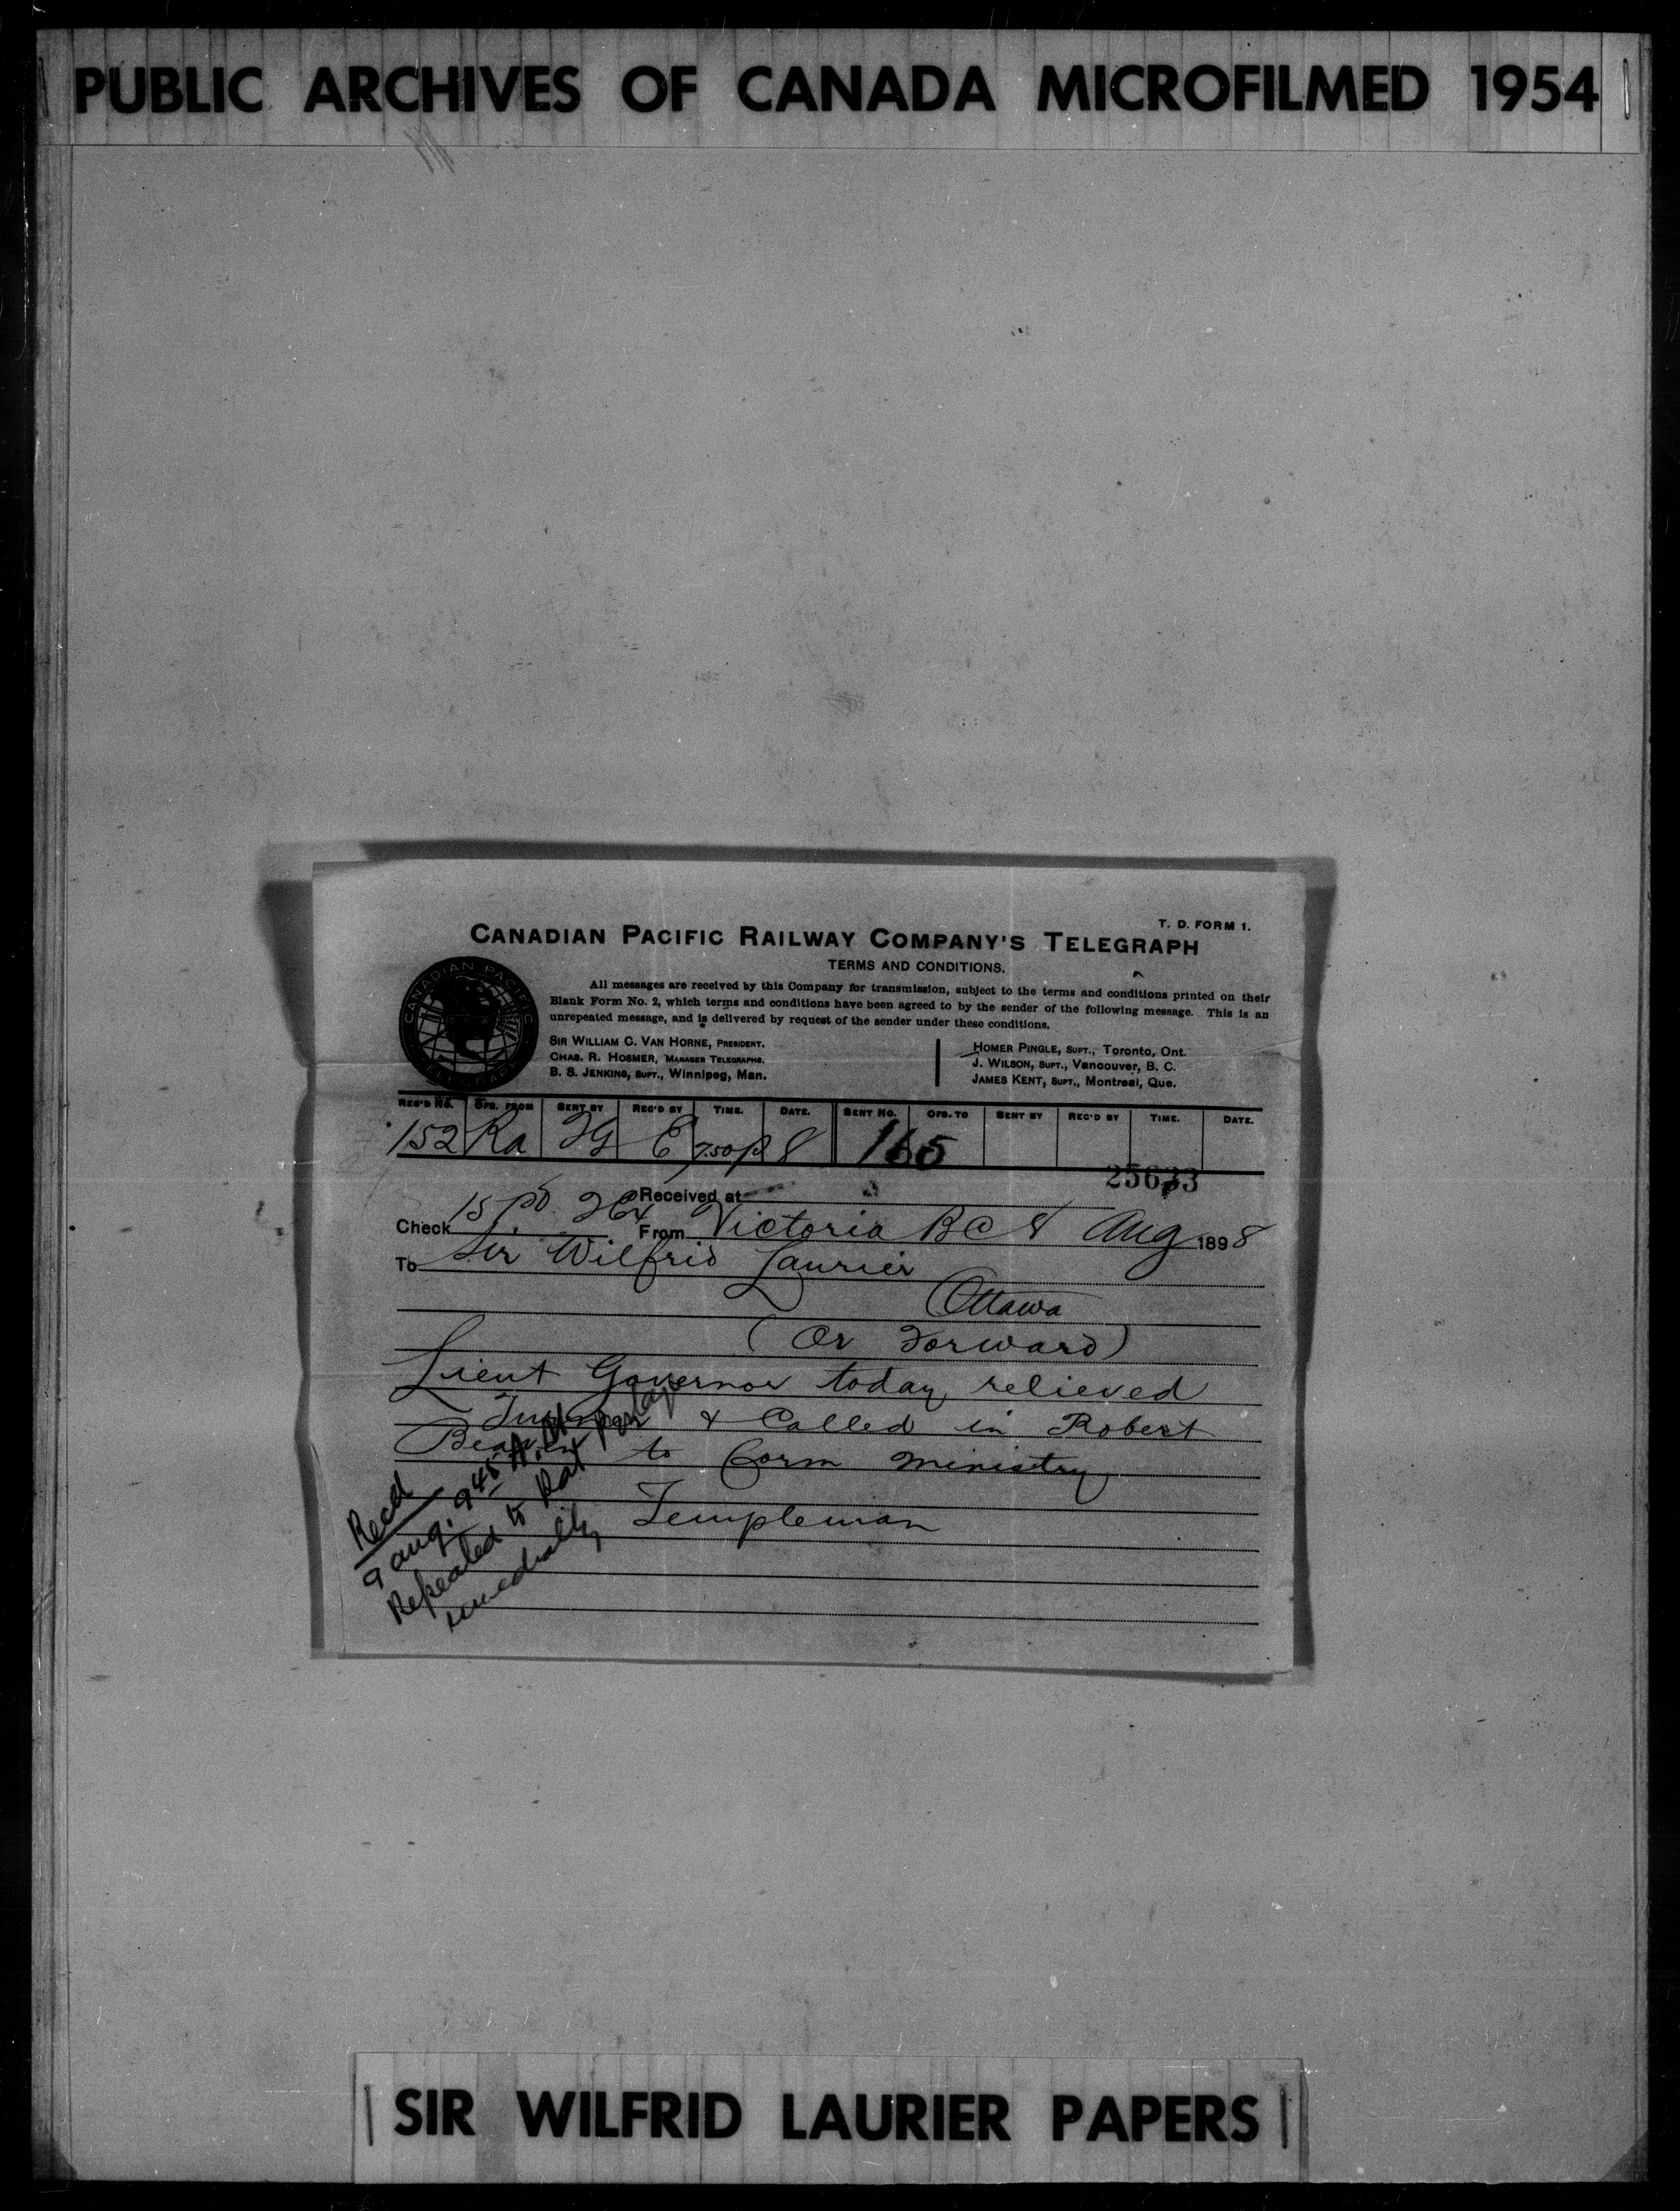 PUBLIC ARCHIVES OF CANADA MICROFILMED 1954
T. D. FORM 1.
CANADIAN PACIFIC RAILWAY COMPANY'S TELEGRAPH
TERMS AND CONDITIONS.
All messages are received by this Company for transmission, subject to the terms and conditions printed on their
Blank Form No. 2, which terms and conditions have been agreed to by the sender of the following message. This is an
unrepeated message, and is delivered by request of the sender under these conditions.
SIR WILLIAM C. VAN HORNE, PRESIDENT.
CHAS. R. HOSMER, MANAGER TELEGRAPHS.
B. S. JENKINS, SUPT., Winnipeg, Man.
HOMER PINGLE, SUPT., Toronto, Ont.
J. WILSON, SUPT., Vancouver, B. C.
JAMES KENT, SUPT., Montreal, Que.
CANADIAN PACIFIC TELEGRAPH
REC'D NO. OFS. FROM SENT BY REC'D BY TIME. DATE. SENT NO. OFS. TO SENT BY REC'D BY TIME. DATE.
152 Ra JG E 7.50p 8 165
25633
Received at
Check 15 pd From Victoria BC 8 Aug 1898
To Sir Wilfrid Laurier
Ottawa
(Or Forward)
Lieut Governor today relieved
Turner & Called in Robert
Beaven to form ministry
Templeman
Recd
9 aug. 9 45 A.M.
Repeated to Rat Portage
immediately
SIR WILFRID LAURIER PAPERS